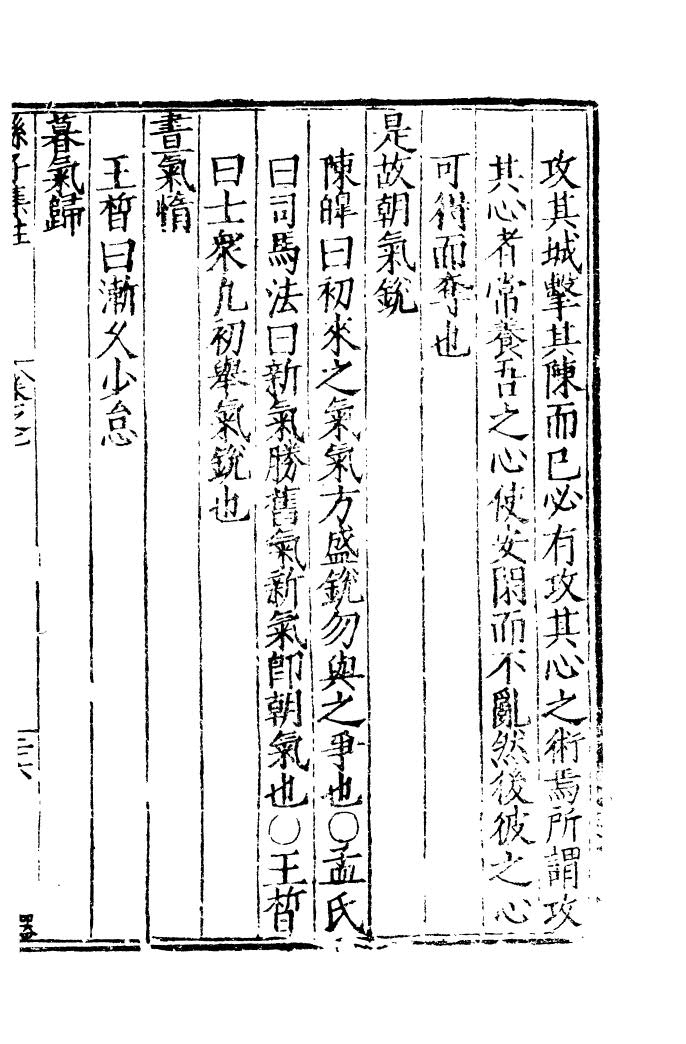 攻其城擊其陳而已必有攻其心之術焉所謂攻
其心者常養吾之心使安閑而不亂然後彼之心
可得而奪也
是故朝氣銳
陳皥曰初來之氣氣方盛銳勿與之爭也○孟氏
曰司馬法曰新氣勝舊氣新氣即朝氣也○王晳
曰士衆凡初舉氣銳也
晝氣惰
王晳曰漸久少怠
暮氣歸
孫子集註
卷之七
三六